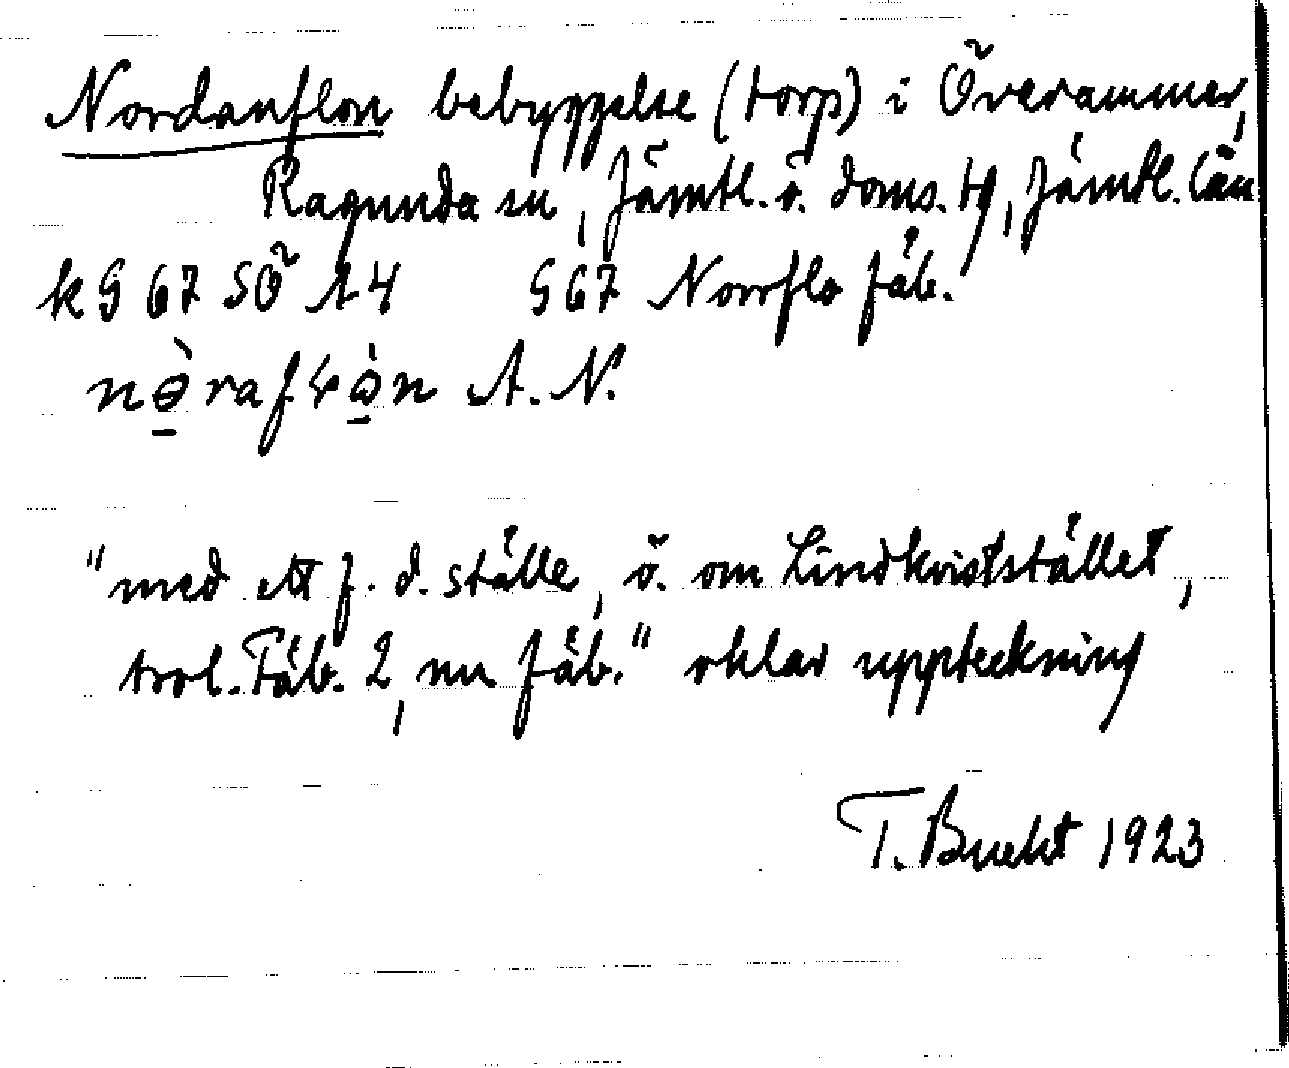 Nordanflon bebyggelse (torp) i Överammer,
Ragunda sn, Jämtl. ö. doms. tg, Jämtl. län
k G 67 SÖ A4 G 67 Norrflo fäb.
A. N.
"med ett f. d. ställe, ö. om Lindkviststället,
trol. Fäb. 2, nu fäb." oklar uppteckning
T. Bucht 1923